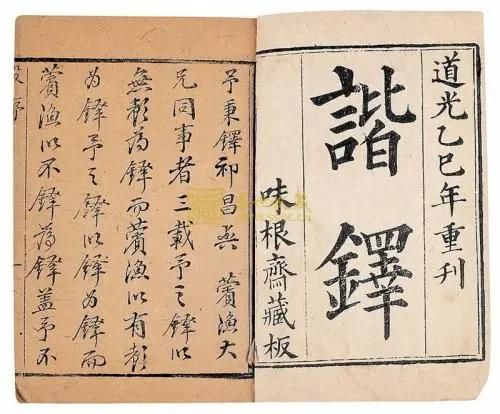 道光乙巳年重刊
諧鐸
味根齋藏板
予秉鐸祁昌與 薲漁大
兄同事者三載予之鐸以
無聲為鐸而薲漁以有聲
為鐸予之鐸以鐸為鐸而
薲漁以不鐸為鐸蓋予不
一